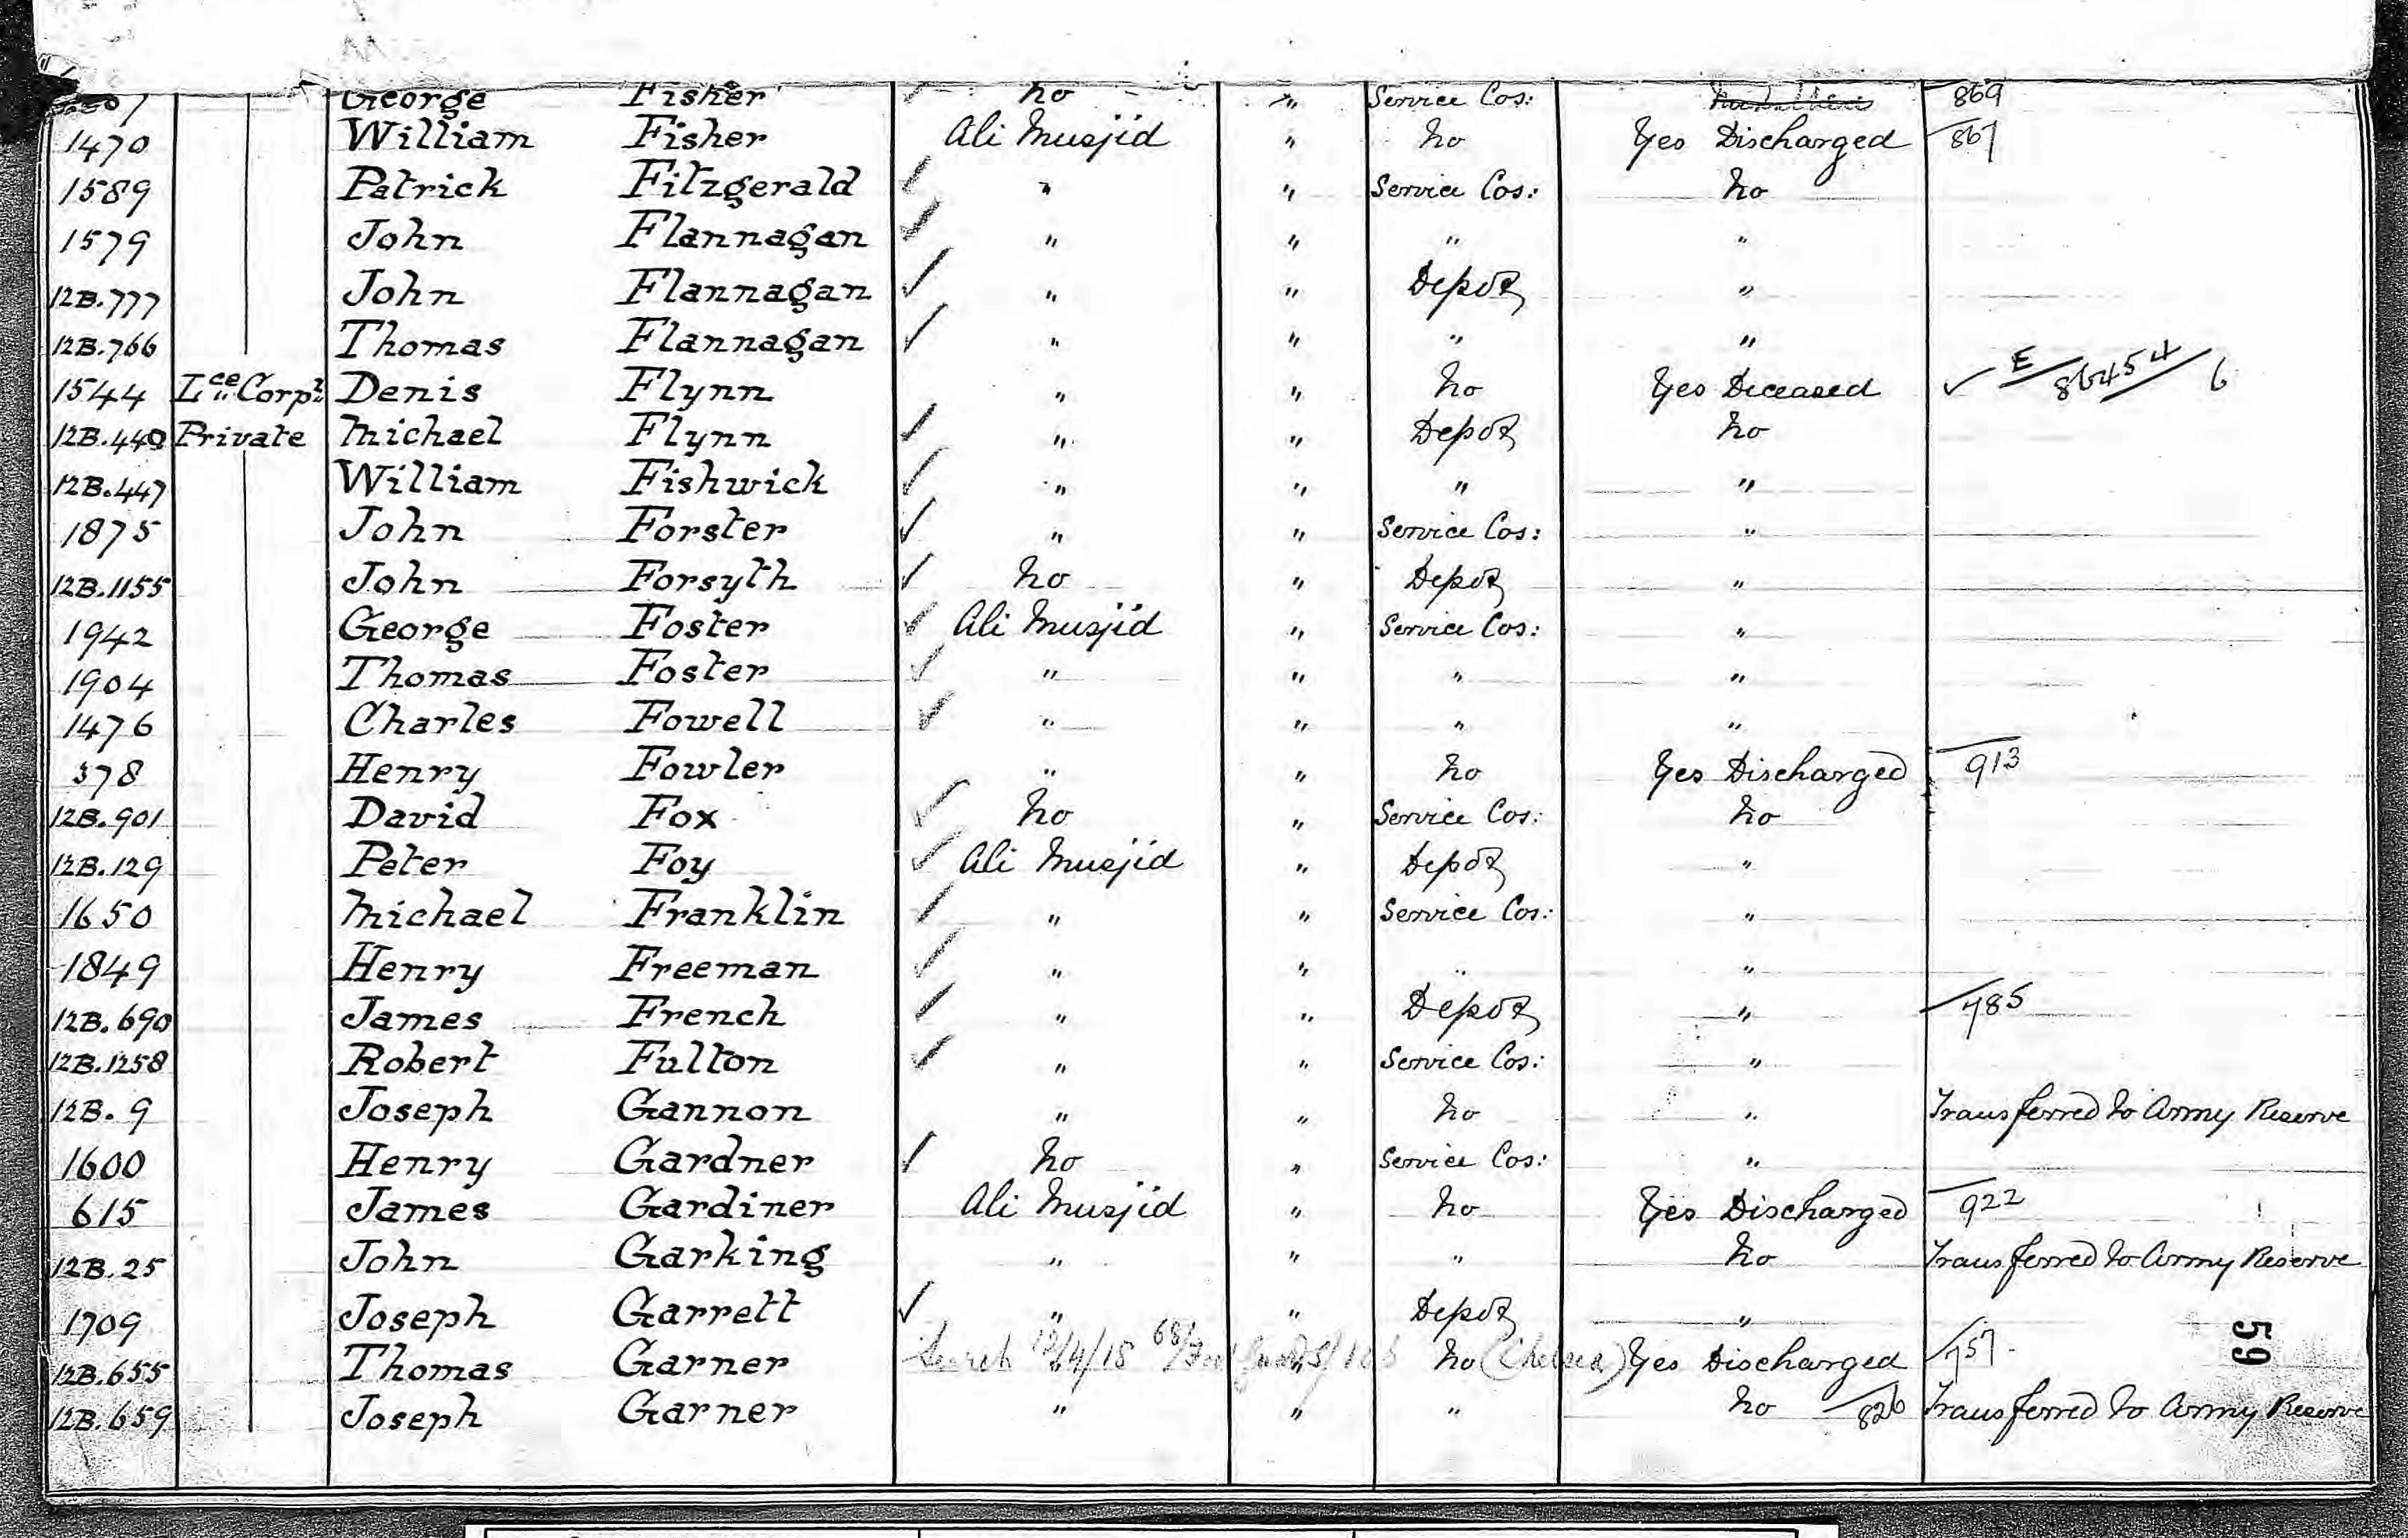 George Fisher ✓ No " Service Cos: 869
1470 William Fisher Ali Musjid " No Yes Discharged 867
1589 Patrick Fitzgerald ✓ " " Service Cos: No
1579 John Flannagan ✓ " " " "
12B.777 John Flannagan ✓ " " Depot "
12B.766 Thomas Flannagan ✓ " " " "
1544 Lce Corpl Denis Flynn " " No Yes Deceased ✓ E/86454/6
12B.449 Private Michael Flynn ✓ " " Depot No
12B.447 William Fishwick ✓ " " " "
1875 John Forster ✓ " " Service Cos: "
12B.1155 John Forsyth ✓ No " Depot "
1942 George Foster ✓ Ali Musjid " Service Cos: "
1904 Thomas Foster ✓ " " " "
1476 Charles Fowell ✓ " " " "
378 Henry Fowler " " No Yes Discharged 913
12B.901 David Fox ✓ No " Service Cos: No
12B.129 Peter Foy ✓ Ali Musjid " Depot "
1650 Michael Franklin ✓ " " Service Cos: "
1849 Henry Freeman ✓ " " " "
12B.690 James French ✓ " " Depot " 785
12B.1258 Robert Fulton ✓ " " Service Cos: "
12B.9 Joseph Gannon " " No " Transferred to Army Reserve
1600 Henry Gardner ✓ No " Service Cos: "
615 James Gardiner Ali Musjid " No Yes Discharged 922
12B.25 John Garking " " " No Transferred to Army Reserve
1709 Joseph Garrett ✓ " " Depot "
12B.655 Thomas Garner Search 12/4/18 " " No (Chelsea) Yes Discharged 757
12B.659 Joseph Garner " " " No 826 Transferred to Army Reserve
59